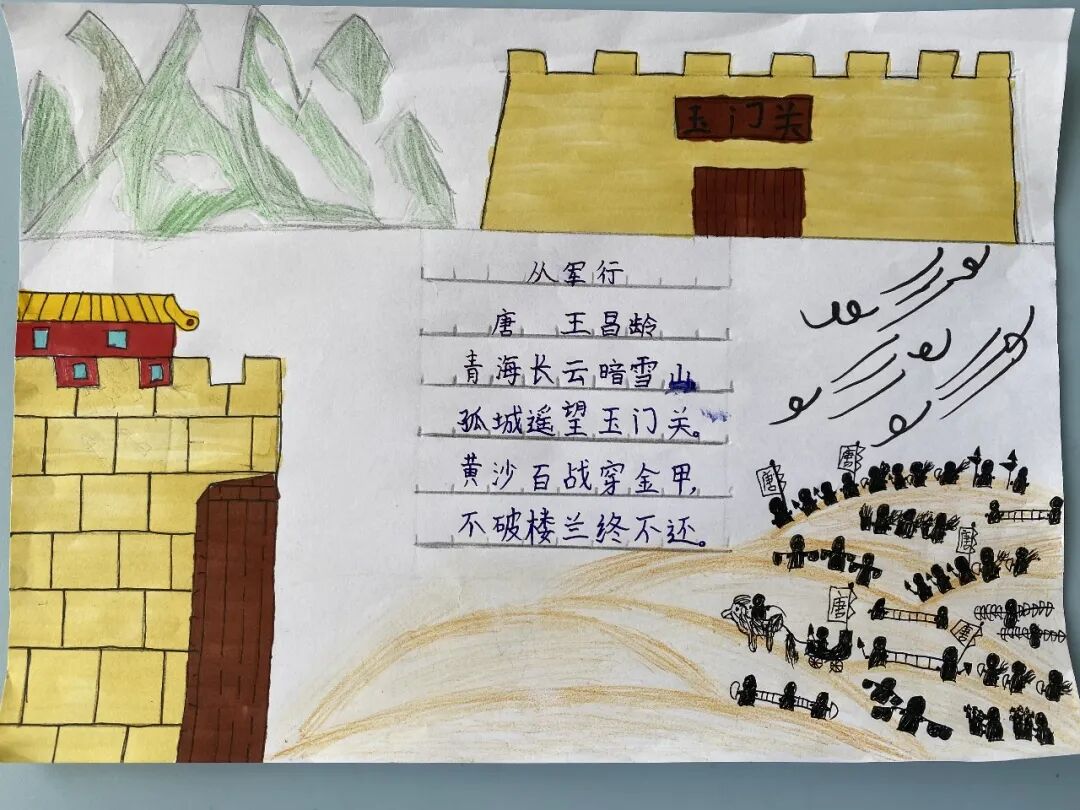 玉门关
从军行
唐 王昌龄
青海长云暗雪山
孤城遥望玉门关。
黄沙百战穿金甲,
不破楼兰终不还。
唐
唐
唐
唐
唐